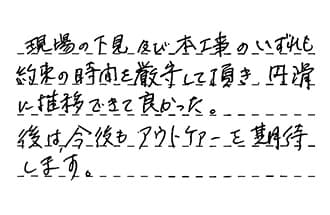 現場の下見及び本工事のいずれも
約束の時間を厳守して頂き、円滑
に推移できて良かった。
後は、今後もアウトケアーを期待
します。